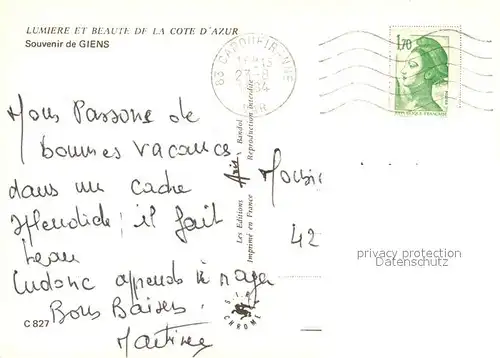 LUMIERE ET BEAUTE DE LA COTE D'AZUR
Souvenir de GIENS
83 CARQUEIRANNE
VAR
1,70
REPUBLIQUE FRANÇAISE
Nous Passons de
bonnes vacances
dans un cadre
splendide; il fait
beau
Ludovic apprends à nager
Bons Baisers.
Martine
C 827
Les Editions Aris Bandol
Imprimé en France Reproduction interdite
S.I.R.
CHROME
42
privacy protection
Datenschutz